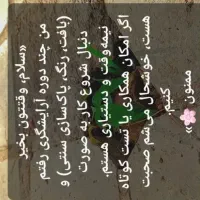 «سلام، وقتتون بخیر
من چند دوره آرایشگری رفتم
(بافت، رنگ، پاکسازی سنتی) و
دنبال شروع کار به صورت
نیمه‌وقت و دستیاری هستم.
اگر امکان همکاری یا تست کوتاه
هست، خوشحال می‌شم صحبت
کنیم.
ممنون 🌸»